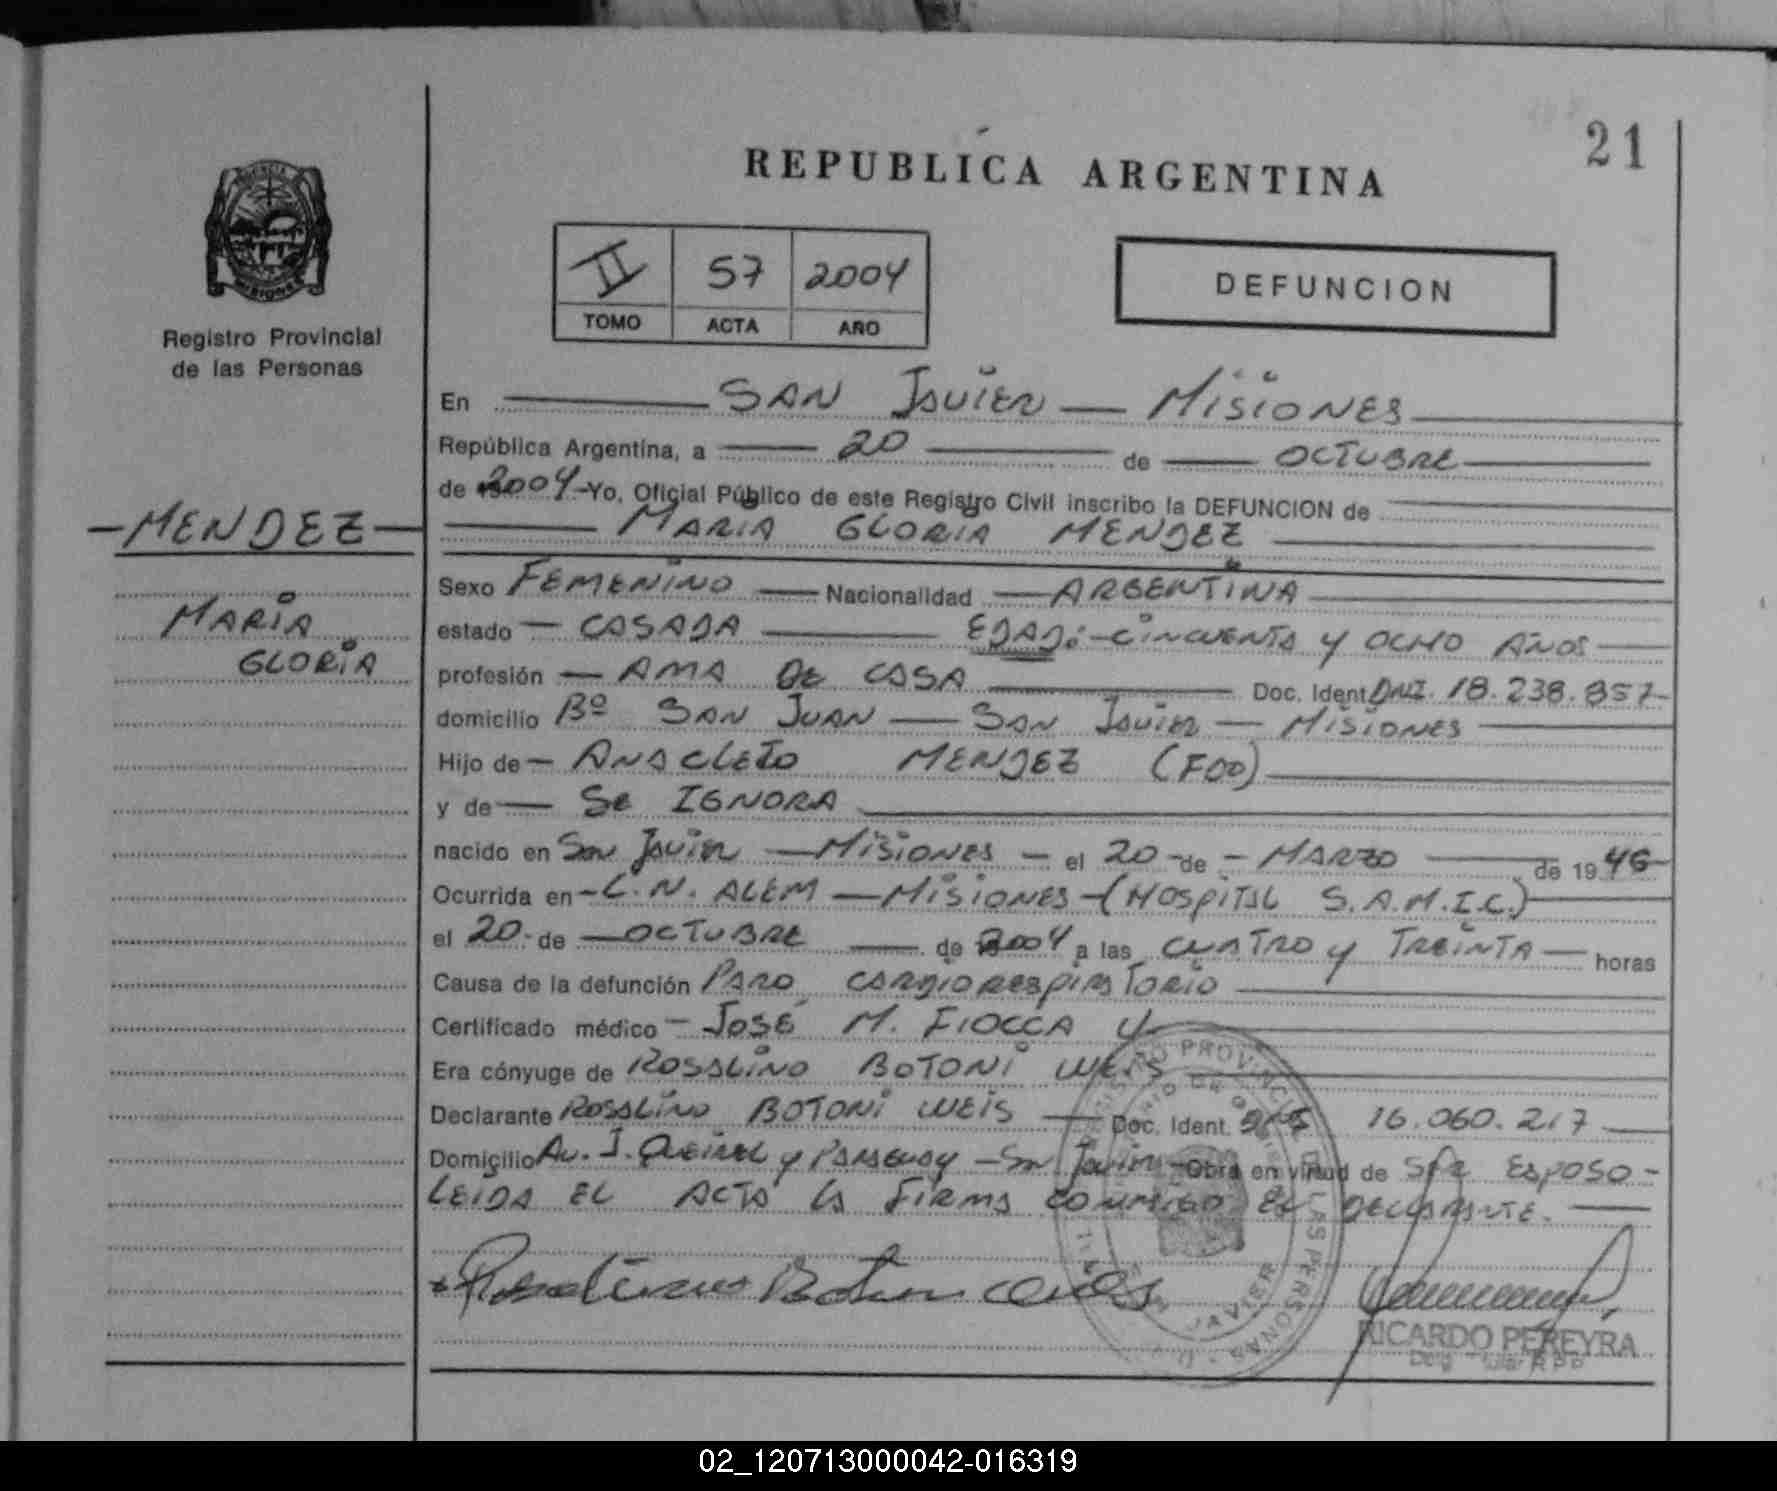 21
REPUBLICA ARGENTINA
II 57 2004
TOMO ACTA AÑO
DEFUNCION
Registro Provincial
de las Personas
MENDEZ
MARIA
GLORIA
En SAN JAVIER — MISIONES
República Argentina, a 20 de OCTUBRE
de 2004 Yo, Oficial Público de este Registro Civil inscribo la DEFUNCION de
MARIA GLORIA MENDEZ
Sexo FEMENINO — Nacionalidad — ARGENTINA
estado — CASADA — EDAD: - CINCUENTA Y OCHO AÑOS
profesión — AMA DE CASA — Doc. Ident. DNI. 18.238.857
domicilio Bº SAN JUAN — SAN JAVIER — MISIONES
Hijo de — ANACLETO MENDEZ (FDO)
y de — SE IGNORA
nacido en SAN JAVIER — MISIONES — el 20 de — MARZO — de 1946
Ocurrida en - L.N. ALEM — MISIONES - (HOSPITAL S.A.M.I.C.)
el 20 de — OCTUBRE — de 2004 a las CUATRO Y TREINTA — horas
Causa de la defunción PARO CARDIORESPIRATORIO
Certificado médico — JOSÉ M. FIOCCA
Era cónyuge de ROSALINO BOTONI WEIS
Declarante ROSALINO BOTONI WEIS — Doc. Ident. 16.060.217
Domicilio AV. J. QUEIREL Y PARAGUAY — SAN JAVIER — Obra en virtud de SER ESPOSO -
LEIDA EL ACTA LA FIRMA CONMIGO EL DECLARANTE.
Rosalino Botoni Weis
RICARDO PEREYRA
02_120713000042-016319